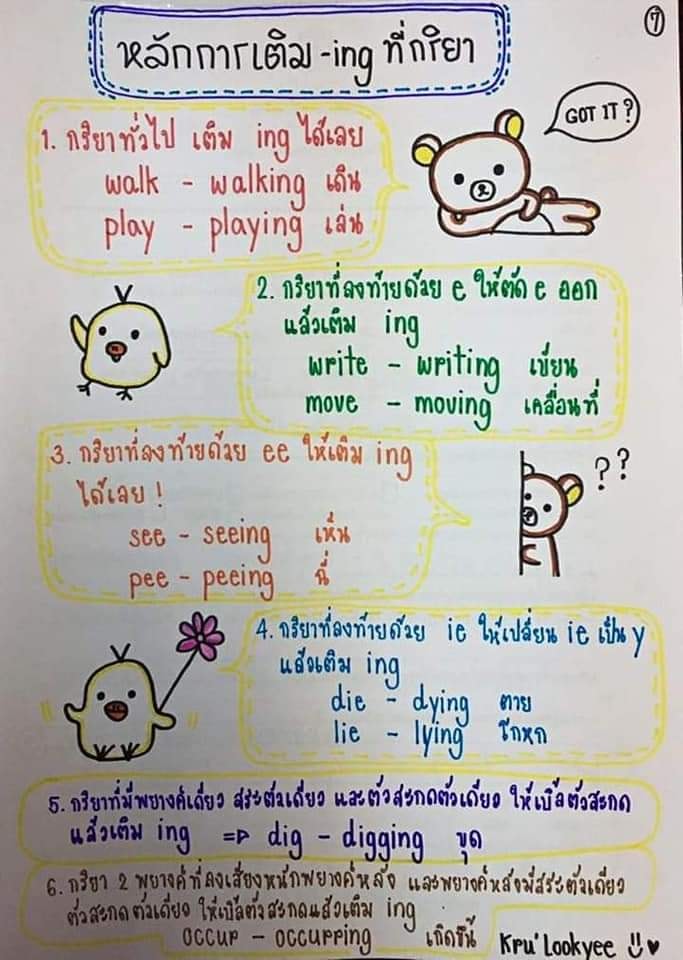 7
หลักการเติม -ing ที่กริยา
GOT IT?
1. กริยาทั่วไป เติม ing ได้เลย
walk - walking เดิน
play - playing เล่น
2. กริยาที่ลงท้ายด้วย e ให้ตัด e ออก
แล้วเติม ing
write - writing เขียน
move - moving เคลื่อนที่
3. กริยาที่ลงท้ายด้วย ee ให้เติม ing
ได้เลย !
see - seeing เห็น
pee - peeing ฉี่
? ?
4. กริยาที่ลงท้ายด้วย ie ให้เปลี่ยน ie เป็น y
แล้วเติม ing
die - dying ตาย
lie - lying โกหก
5. กริยาที่มีพยางค์เดียว สระตัวเดียว และตัวสะกดตัวเดียว ให้เบิ้ลตัวสะกด
แล้วเติม ing => dig - digging ขุด
6. กริยา 2 พยางค์ที่ลงเสียงหนักพยางค์หลัง และพยางค์หลังมีสระตัวเดียว
ตัวสะกดตัวเดียว ให้เบิ้ลตัวสะกดแล้วเติม ing
occur - occurring เกิดขึ้น
Kru' Lookyee